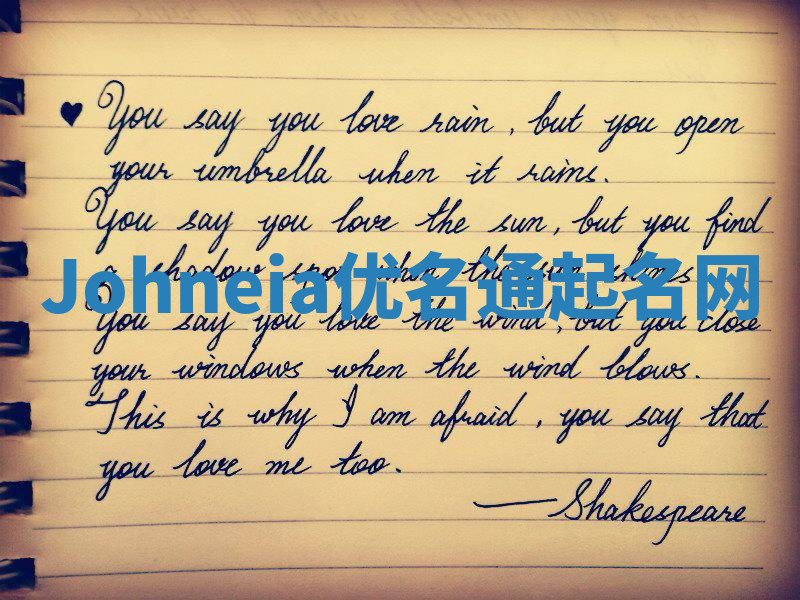 ♥ You say you love rain, but you open
your umbrella when it rains.
You say you love the sun, but you find
a shadow spot when the sun shines
Johneia优名通起名网
You say you love the wind, but you close
your windows when the wind blows.
This is why I am afraid, you say that
you love me too.
—Shakespeare